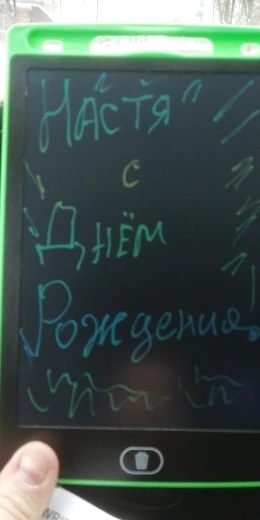 Настя
с
Днём
Рождения